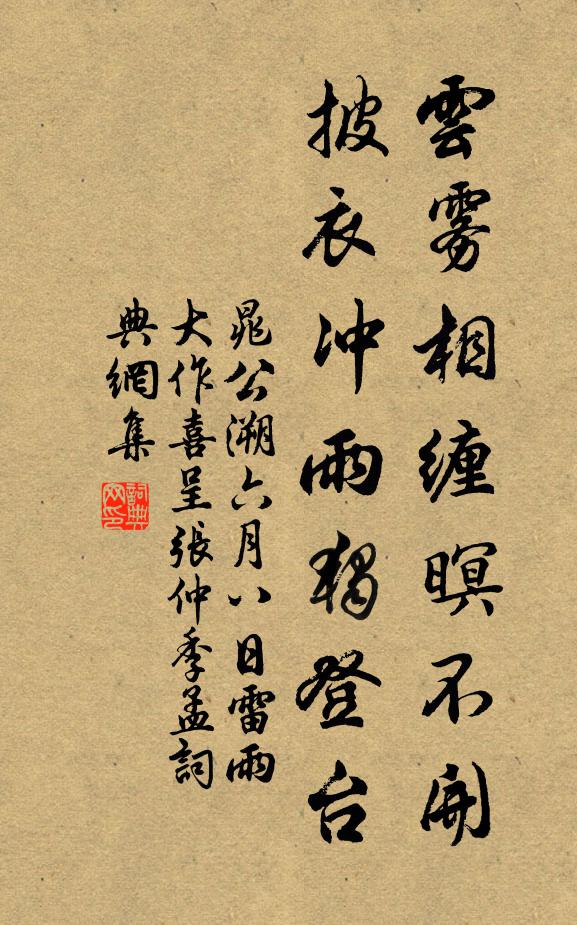 雲雾相缠暝不開
披衣冲雨独登台
晁公溯六月八日雷雨
大作喜呈張仲季孟詞
典網集
詞典
网印